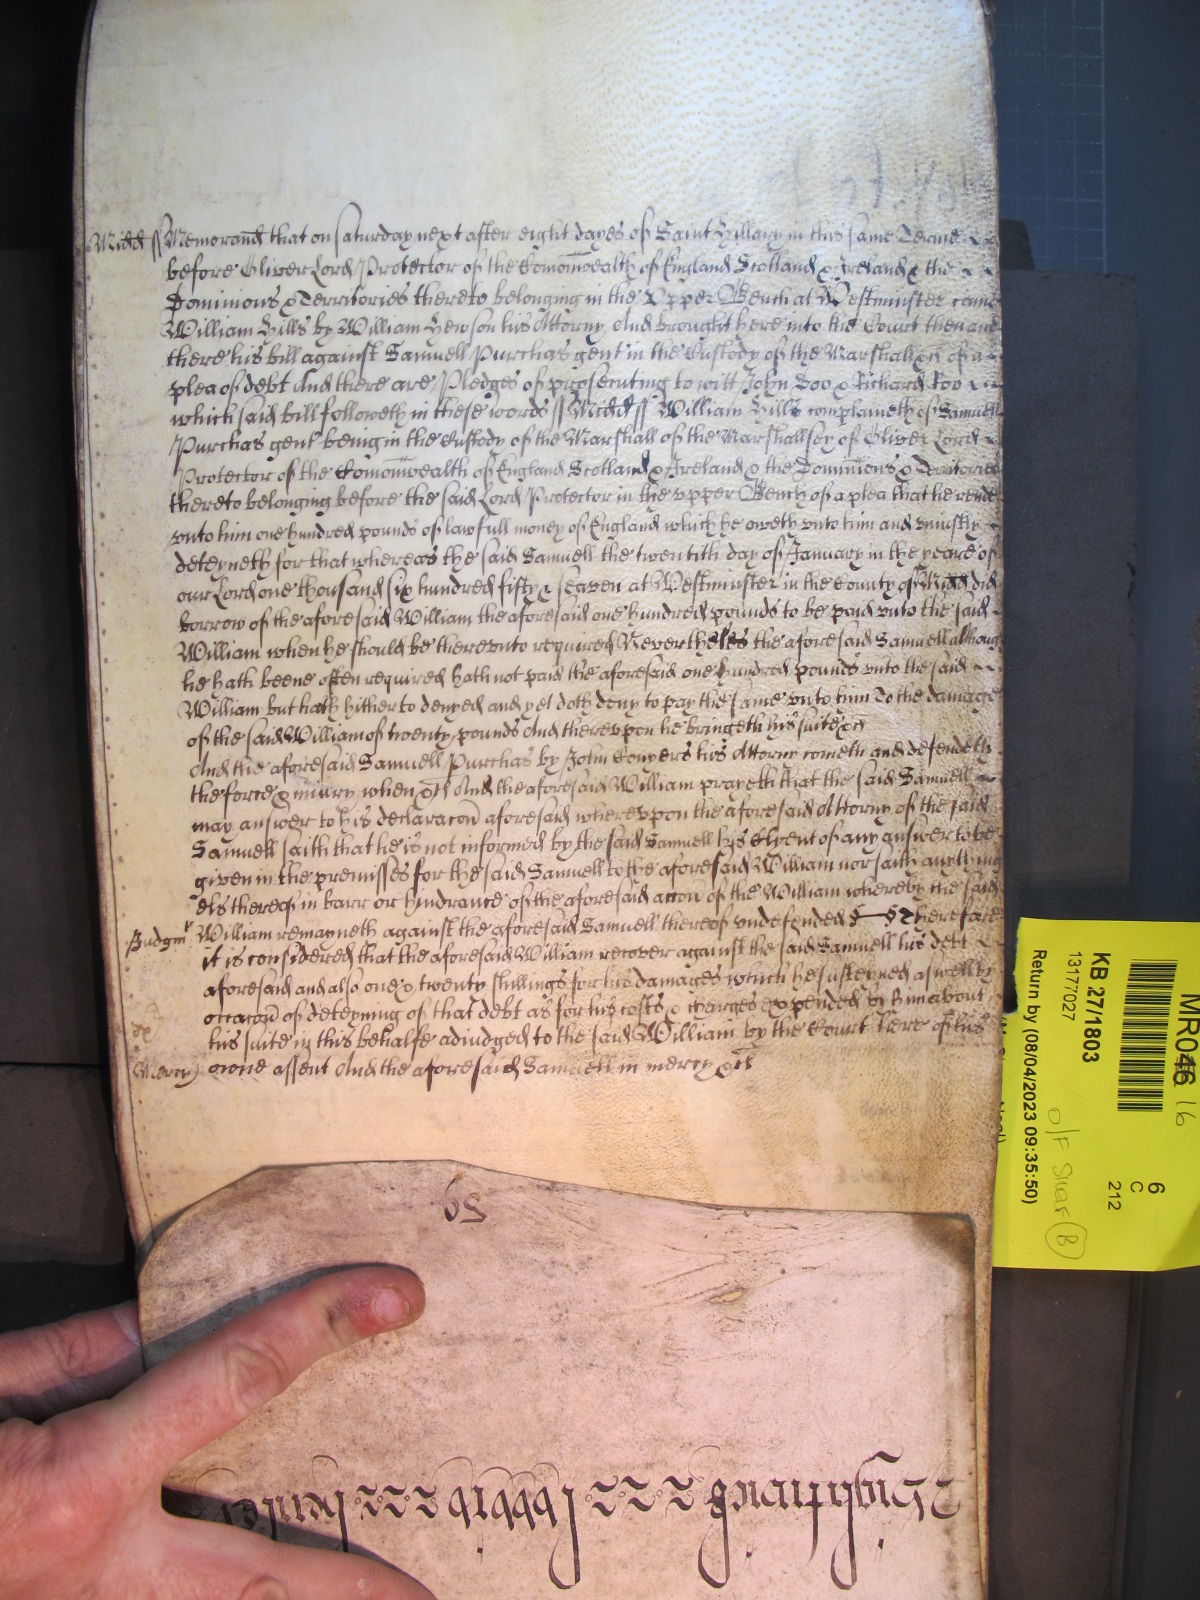 Midd ss Memorand that on Saturday next after eight dayes of Saint Hillary in this same Terme
before Oliver Lord Protector of the Comonwealth of England Scotland & Ireland & the
Dominions & Territories thereto belonging in the Upper Bench at Westminster came
William Hills by William Hewson his Attorny And brought here into the Court then and
there his bill against Samuell Purchas gent in the Custody of the Marshall &c of a
plea of debt And there are Pledges of prosecuting to witt John Doo & Richard Roo
which said bill followeth in these words ss Midd ss William Hills complaineth of Samuell
Purchas gent being in the Custody of the Marshall of the Marshallsey of Oliver Lord
Protector of the Comonwealth of England Scotland & Ireland & the Dominions & Territories
thereto belonging before the said Lord Protector in the upper Bench of a plea that he render
unto him one hundred pounds of lawfull money of England which he oweth unto him and uniustly
deteyneth for that whereas the said Samuell the twentith day of January in the yeare of
our Lord one thousand six hundred fifty & seaven at Westminster in the County of Midd did
borrow of the aforesaid William the aforesaid one hundred pounds to be paid unto the said
William when he should be thereunto required Neverthelес the aforesaid Samuell although
he hath beene often required hath not paid the aforesaid one hundred pounds unto the said
William but hath hitherto denyed and yet doth deny to pay the same unto him To the damage
of the said William of twenty pounds And thereupon he bringeth his suite &c
And the aforesaid Samuell Purchas by John Conyers his Attorny cometh and defendeth
the force & iniury when &c And the aforesaid William prayeth that the said Samuell
may answer to his declaracon aforesaid whereupon the aforesaid Attorny of the said
Samuell saith that he is not informed by the said Samuell his Clyent of any answer to be
given in the premisses for the said Samuell to the aforesaid William nor saith any thing
els thereof in barr or hindrance of the aforesaid accon of the William whereby the said
William remayneth against the aforesaid Samuell thereof undefended Therefore
Judgmt it is considered that the aforesaid William recover against the said Samuell his debt
aforesaid and also one & twenty shillings for his damages which he susteyned aswell by
occacon of deteyning of that debt as for his costs & charges expended by him about
his suite in this behalfe adiudged to the said William by the Court here of his
Mercy owne assent And the aforesaid Samuell in mercy &c
59
MR046 16
KB 27/1803
13177027
Return by (08/04/2023 09:35:50)
6
C
212
O/F Shaf B